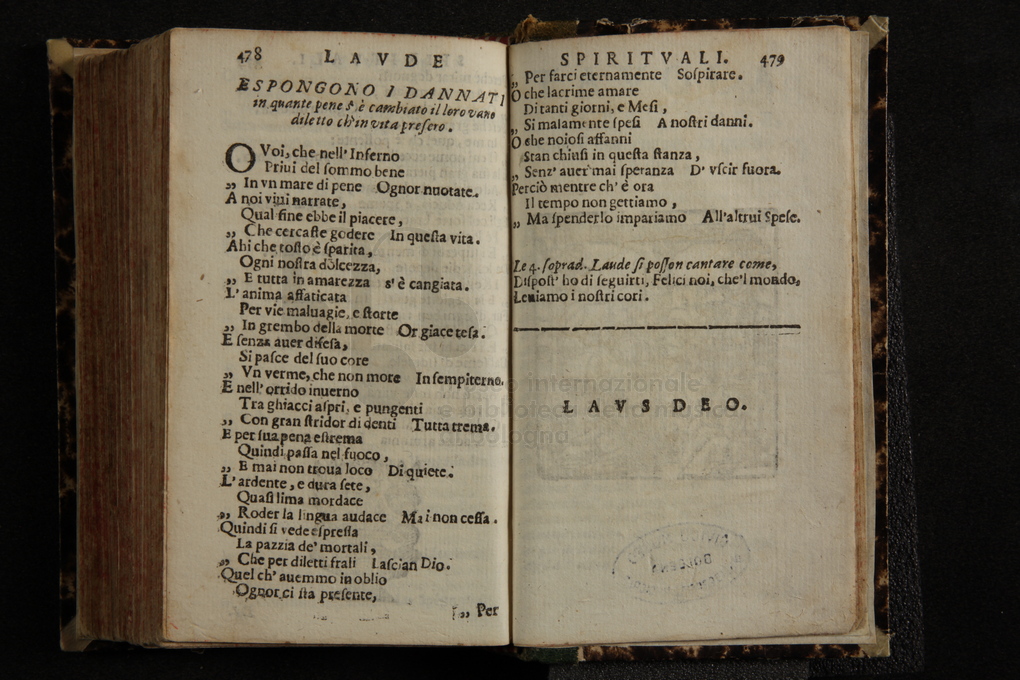 478 LAVDE
ESPONGONO I DANNATI
in quante pene s' è cambiato il loro vano
diletto ch'in vita presero.
O Voi, che nell' Inferno
Priui del sommo bene
„ In vn mare di pene Ognor nuotate.
A noi viui narrate,
Qual fine ebbe il piacere,
„ Che cercaste godere In questa vita.
Ahi che tosto è sparita,
Ogni nostra dolcezza,
„ E tutta in amarezza s' è cangiata.
L' anima affaticata
Per vie maluagie, e storte
„ In grembo della morte Or giace tesa.
E senza auer difesa,
Si pasce del suo core
„ Vn verme, che non more In sempiterno.
E nell' orrido inuerno
Tra ghiacci aspri, e pungenti
„ Con gran stridor di denti Tutta trema.
E per sua pena estrema
Quindi passa nel fuoco,
„ E mai non troua loco Di quiete.
L' ardente, e dura sete,
Quasi lima mordace
„ Roder la lingua audace Mai non cessa.
Quindi si vede espressa
La pazzia de' mortali,
„ Che per diletti frali Lascian Dio.
Quel ch' auemmo in oblio
Ognor ci sta presente,
„ Per
SPIRITVALI. 479
„ Per farci eternamente Sospirare.
O che lacrime amare
Di tanti giorni, e Mesi,
„ Si malamente spesi A nostri danni.
O che noiosi affanni
Stan chiusi in questa stanza,
„ Senz' auer mai speranza D' vscir fuora.
Perciò mentre ch' è ora
Il tempo non gettiamo,
„ Ma spenderlo impariamo All'altrui Spese.
Le 4. soprad. Laude si posson cantare come,
Dispost' ho di seguirti, Felici noi, che'l mondo,
Leuiamo i nostri cori.
LAVS DEO.
museo internazionale
e biblioteca della musica
di bologna